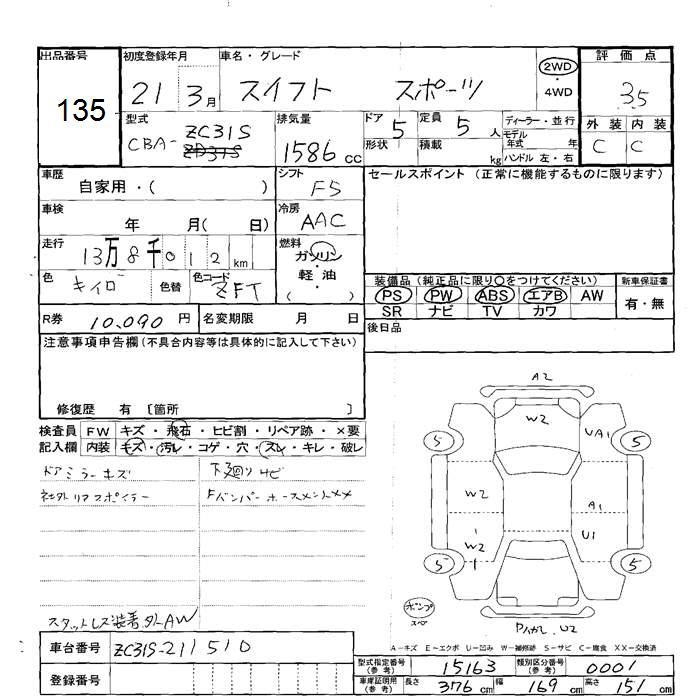 出品番号 初度登録年月 車名・グレード 2WD 評価点
135 21 3月 スイフト スポーツ ・4WD 3.5
型式 排気量 ドア 5 定員 5人 ディーラー・並行 外装 内装
CBA- ZC31S 1586cc 形状 積載 kg モデル年式 年 C C
ハンドル 左・右
車歴 シフト セールスポイント (正常に機能するものに限ります)
自家用・( ) F5
車検 冷房
年 月( 日) AAC
走行 燃料
13万8千012km ガソリン
色 キイロ 色替 色コード ZFT 軽・油
( )
装備品 (純正品に限り○をつけてください) 新車保証書
PS PW ABS エアB AW 有・無
SR ナビ TV カワ
R券 10,090円 名変期限 月 日 後日品
注意事項申告欄(不具合内容等は具体的に記入して下さい)
修復歴 有 [箇所 ]
検査員 FW キズ・飛石・ヒビ割・リペア跡・×要
記入欄 内装 キズ・汚レ・コゲ・穴・スレ・キレ・破レ
ドアミラーキズ 下廻りサビ
社外リアスポイラー
スタットレス装着 外AW
A2
W2
UA1
5 5
W2
A1
W2 U1
1
1
5 5
U2
A-キズ E-エクボ U-凹み W-補修跡 S-サビ C-腐食 XX-交換済
車台番号 ZC31S-211510
登録番号
型式指定番号(参考) 15163 類別区分番号(参考) 0001
車庫証明用(参考) 長さ 376cm 幅 169cm 高さ 151cm